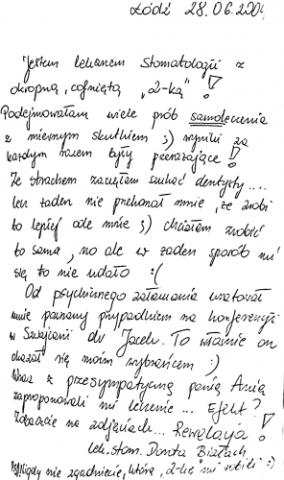 Łódź 28.06.2004
Jestem lekarzem Stomatologii z
okropną, cofniętą „2-ką" !
Podejmowałam wiele prób samoleczenia
z miernym skutkiem ;) wyniki za
każdym razem były przerażające !
Ze strachem zaczęłam szukać dentysty....
lecz żaden nie przekonał mnie, że zrobi
to lepiej ode mnie ;) chciałam zrobić
to sama, no ale w żaden sposób mi
się to nie udało :(
Od psychicznego załamania uratował
mnie poznany przypadkiem na konferencji
w Szwajcarii dr Jacek. To właśnie on
okazał się moim wybrańcem :)
Wraz z przesympatyczną panią Anią
zaproponowali mi leczenie... Efekt?
Zobaczcie na zdjęciach... Rewelacja !
lek. stom. Dorota
Nigdy nie zgadniecie, którą „2-kę" mi robili :)